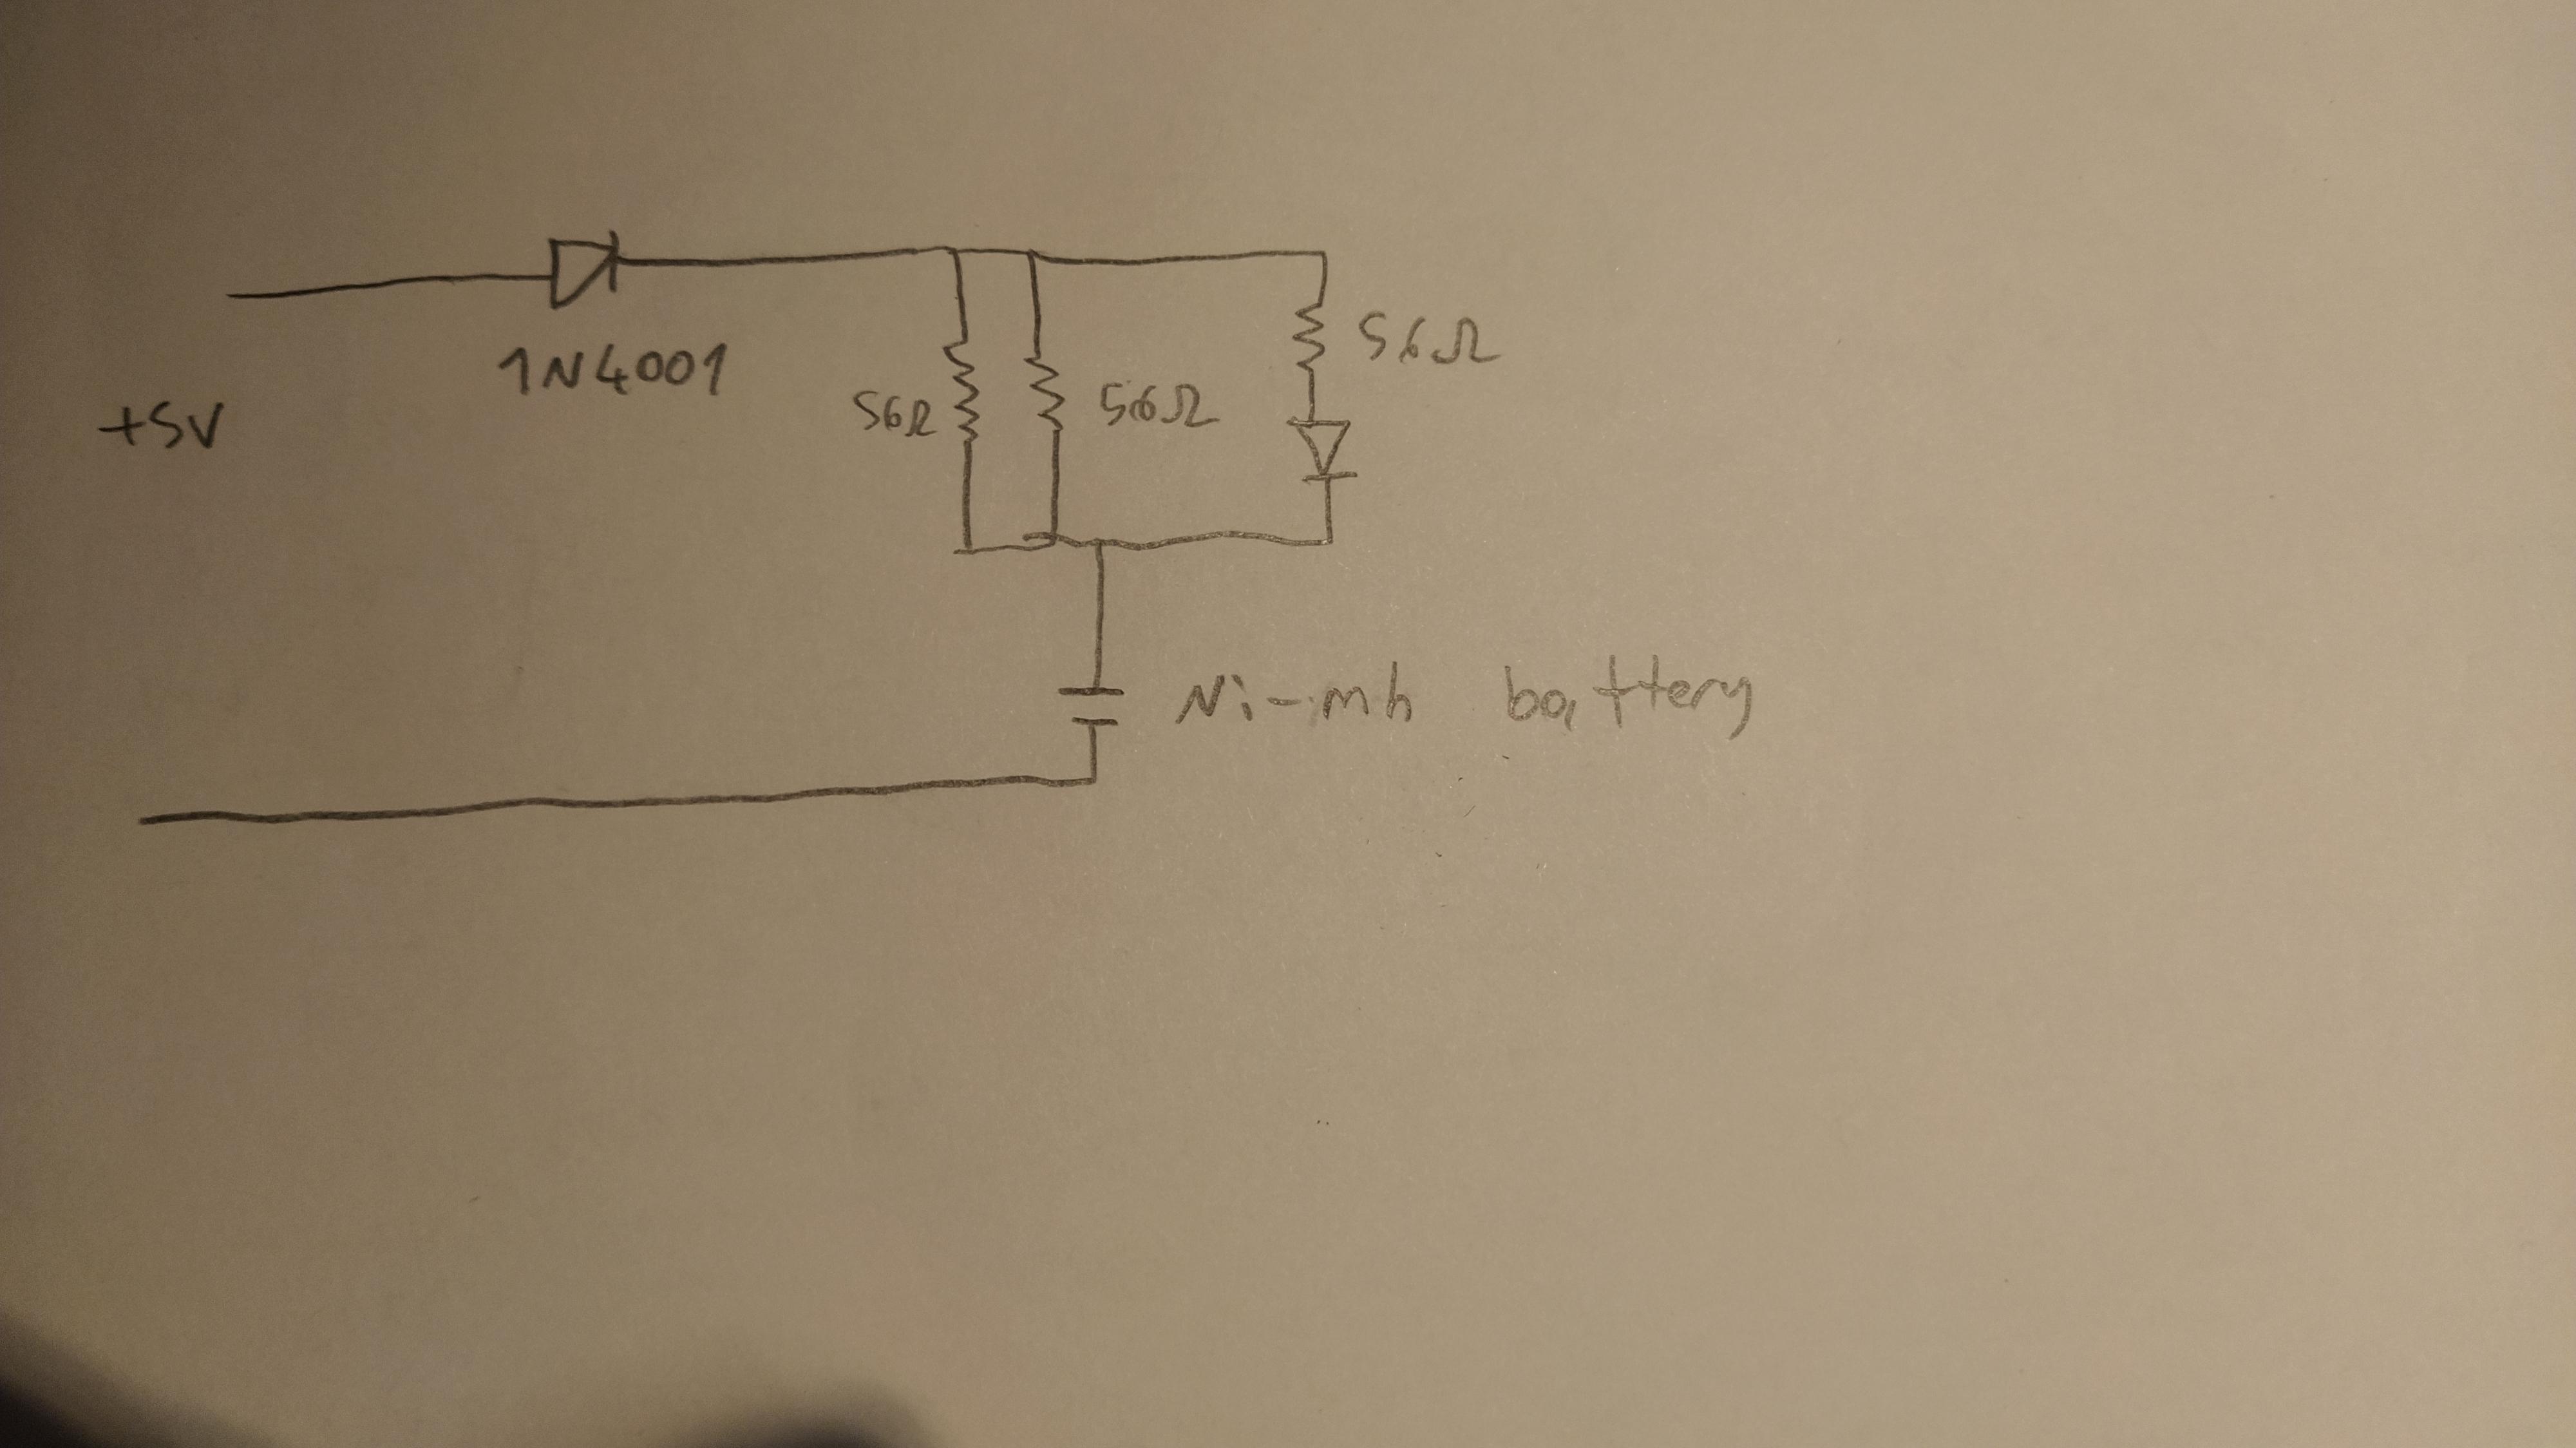 +5V
1N4001
56Ω
56Ω
56Ω
Ni-mh battery